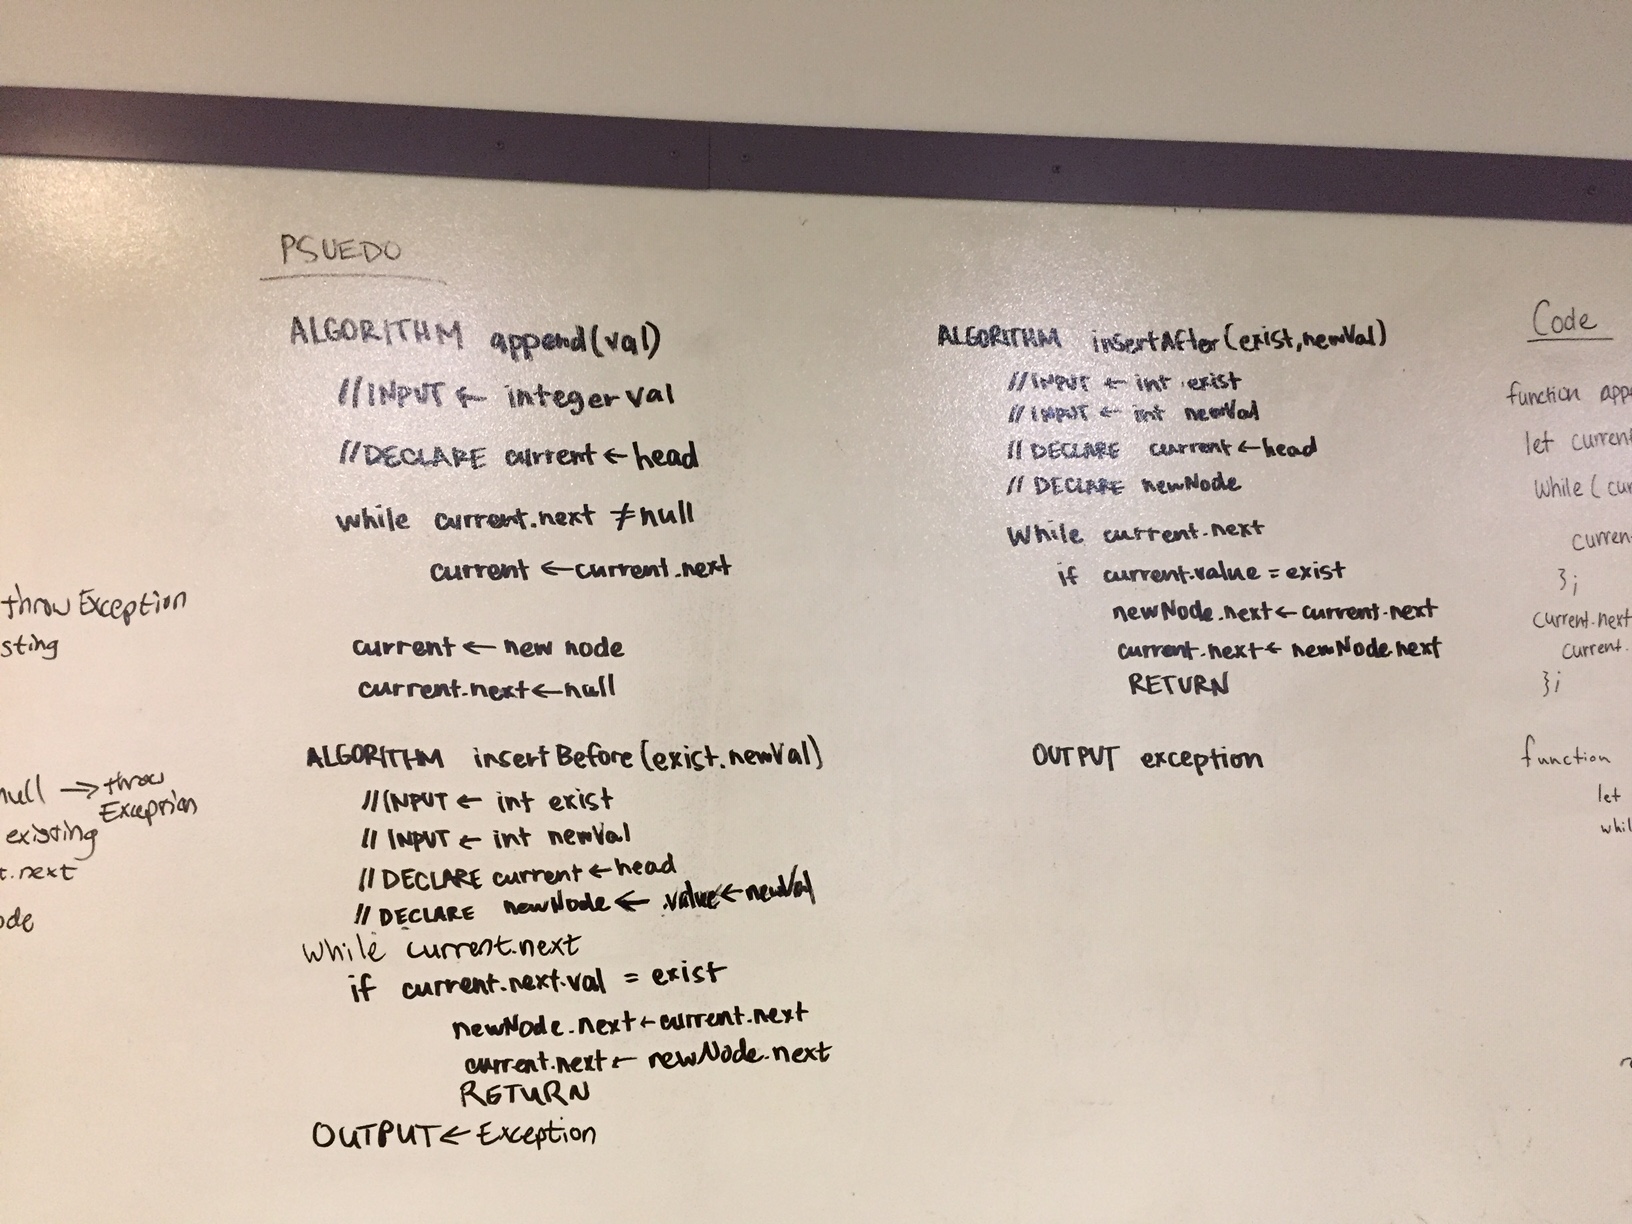 PSUEDO
ALGORITHM append(val)
//INPUT ← integer val
//DECLARE current ← head
while current.next ≠ null
current ← current.next
current ← new node
current.next ← null
ALGORITHM insertBefore(exist.newVal)
//INPUT ← int exist
// INPUT ← int newVal
// DECLARE current ← head
// DECLARE newNode ← .value ← newVal
while current.next
if current.next.val = exist
newNode.next ← current.next
current.next ← newNode.next
RETURN
OUTPUT ← Exception
ALGORITHM insertAfter(exist,newVal)
//INPUT ← int exist
//INPUT ← int newVal
// DECLARE current ← head
// DECLARE newNode
While current.next
if current.value = exist
newNode.next ← current.next
current.next ← newNode.next
RETURN
OUTPUT exception
throw Exception
sting
null → throw
Exception
existing
t.next
ode
Code
function appe
let current
While ( cur
curren
};
current.next
current.
};
function
let
whil